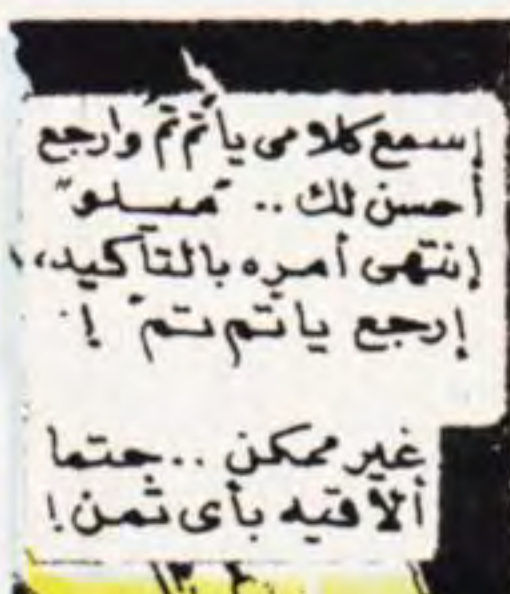 إسمع كلامى يا"تم تم" وارجع
أحسن لك .. "ميلو"
إنتهى أمره بالتأكيد،
إرجع يا"تم تم" !
غير ممكن .. حتما
ألاقيه بأى ثمن !